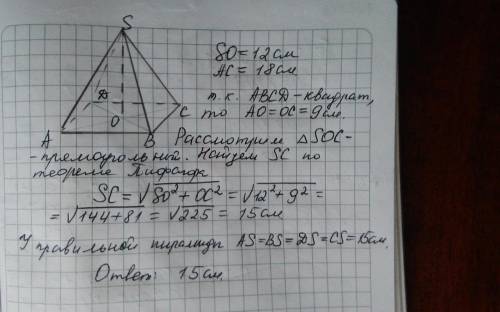 S
SO = 12 см
AC = 18 см
D
C
т.к. ABCD - квадрат,
O
то AO = OC = 9 см.
A
B
Рассмотрим △SOC -
- прямоугольный. Найдем SC по
теореме Пифагора
SC = √SO² + OC² = √12² + 9² =
= √144 + 81 = √225 = 15 см
У правильной пирамиды AS = BS = DS = CS = 15 см.
Ответ: 15 см.